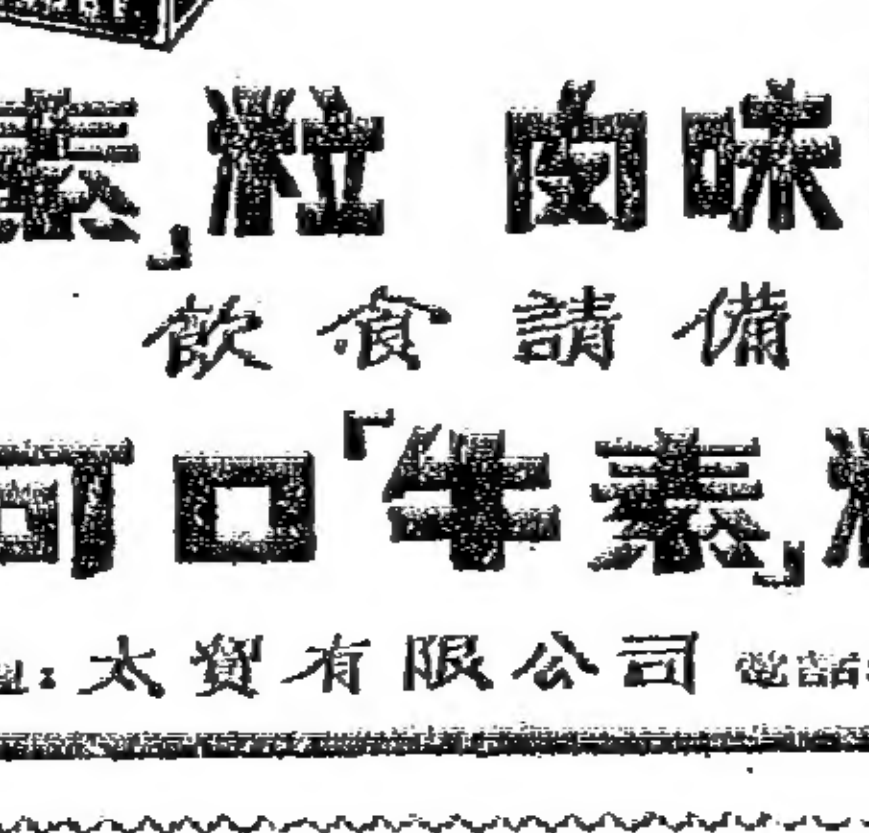 素」粒 卤味
飲食請備
可口「牛素」粒
理:太貿有限公司 電話: